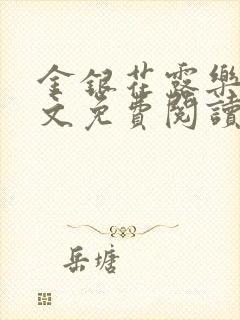 金銀花露樂
文免費閱讀
岳塘